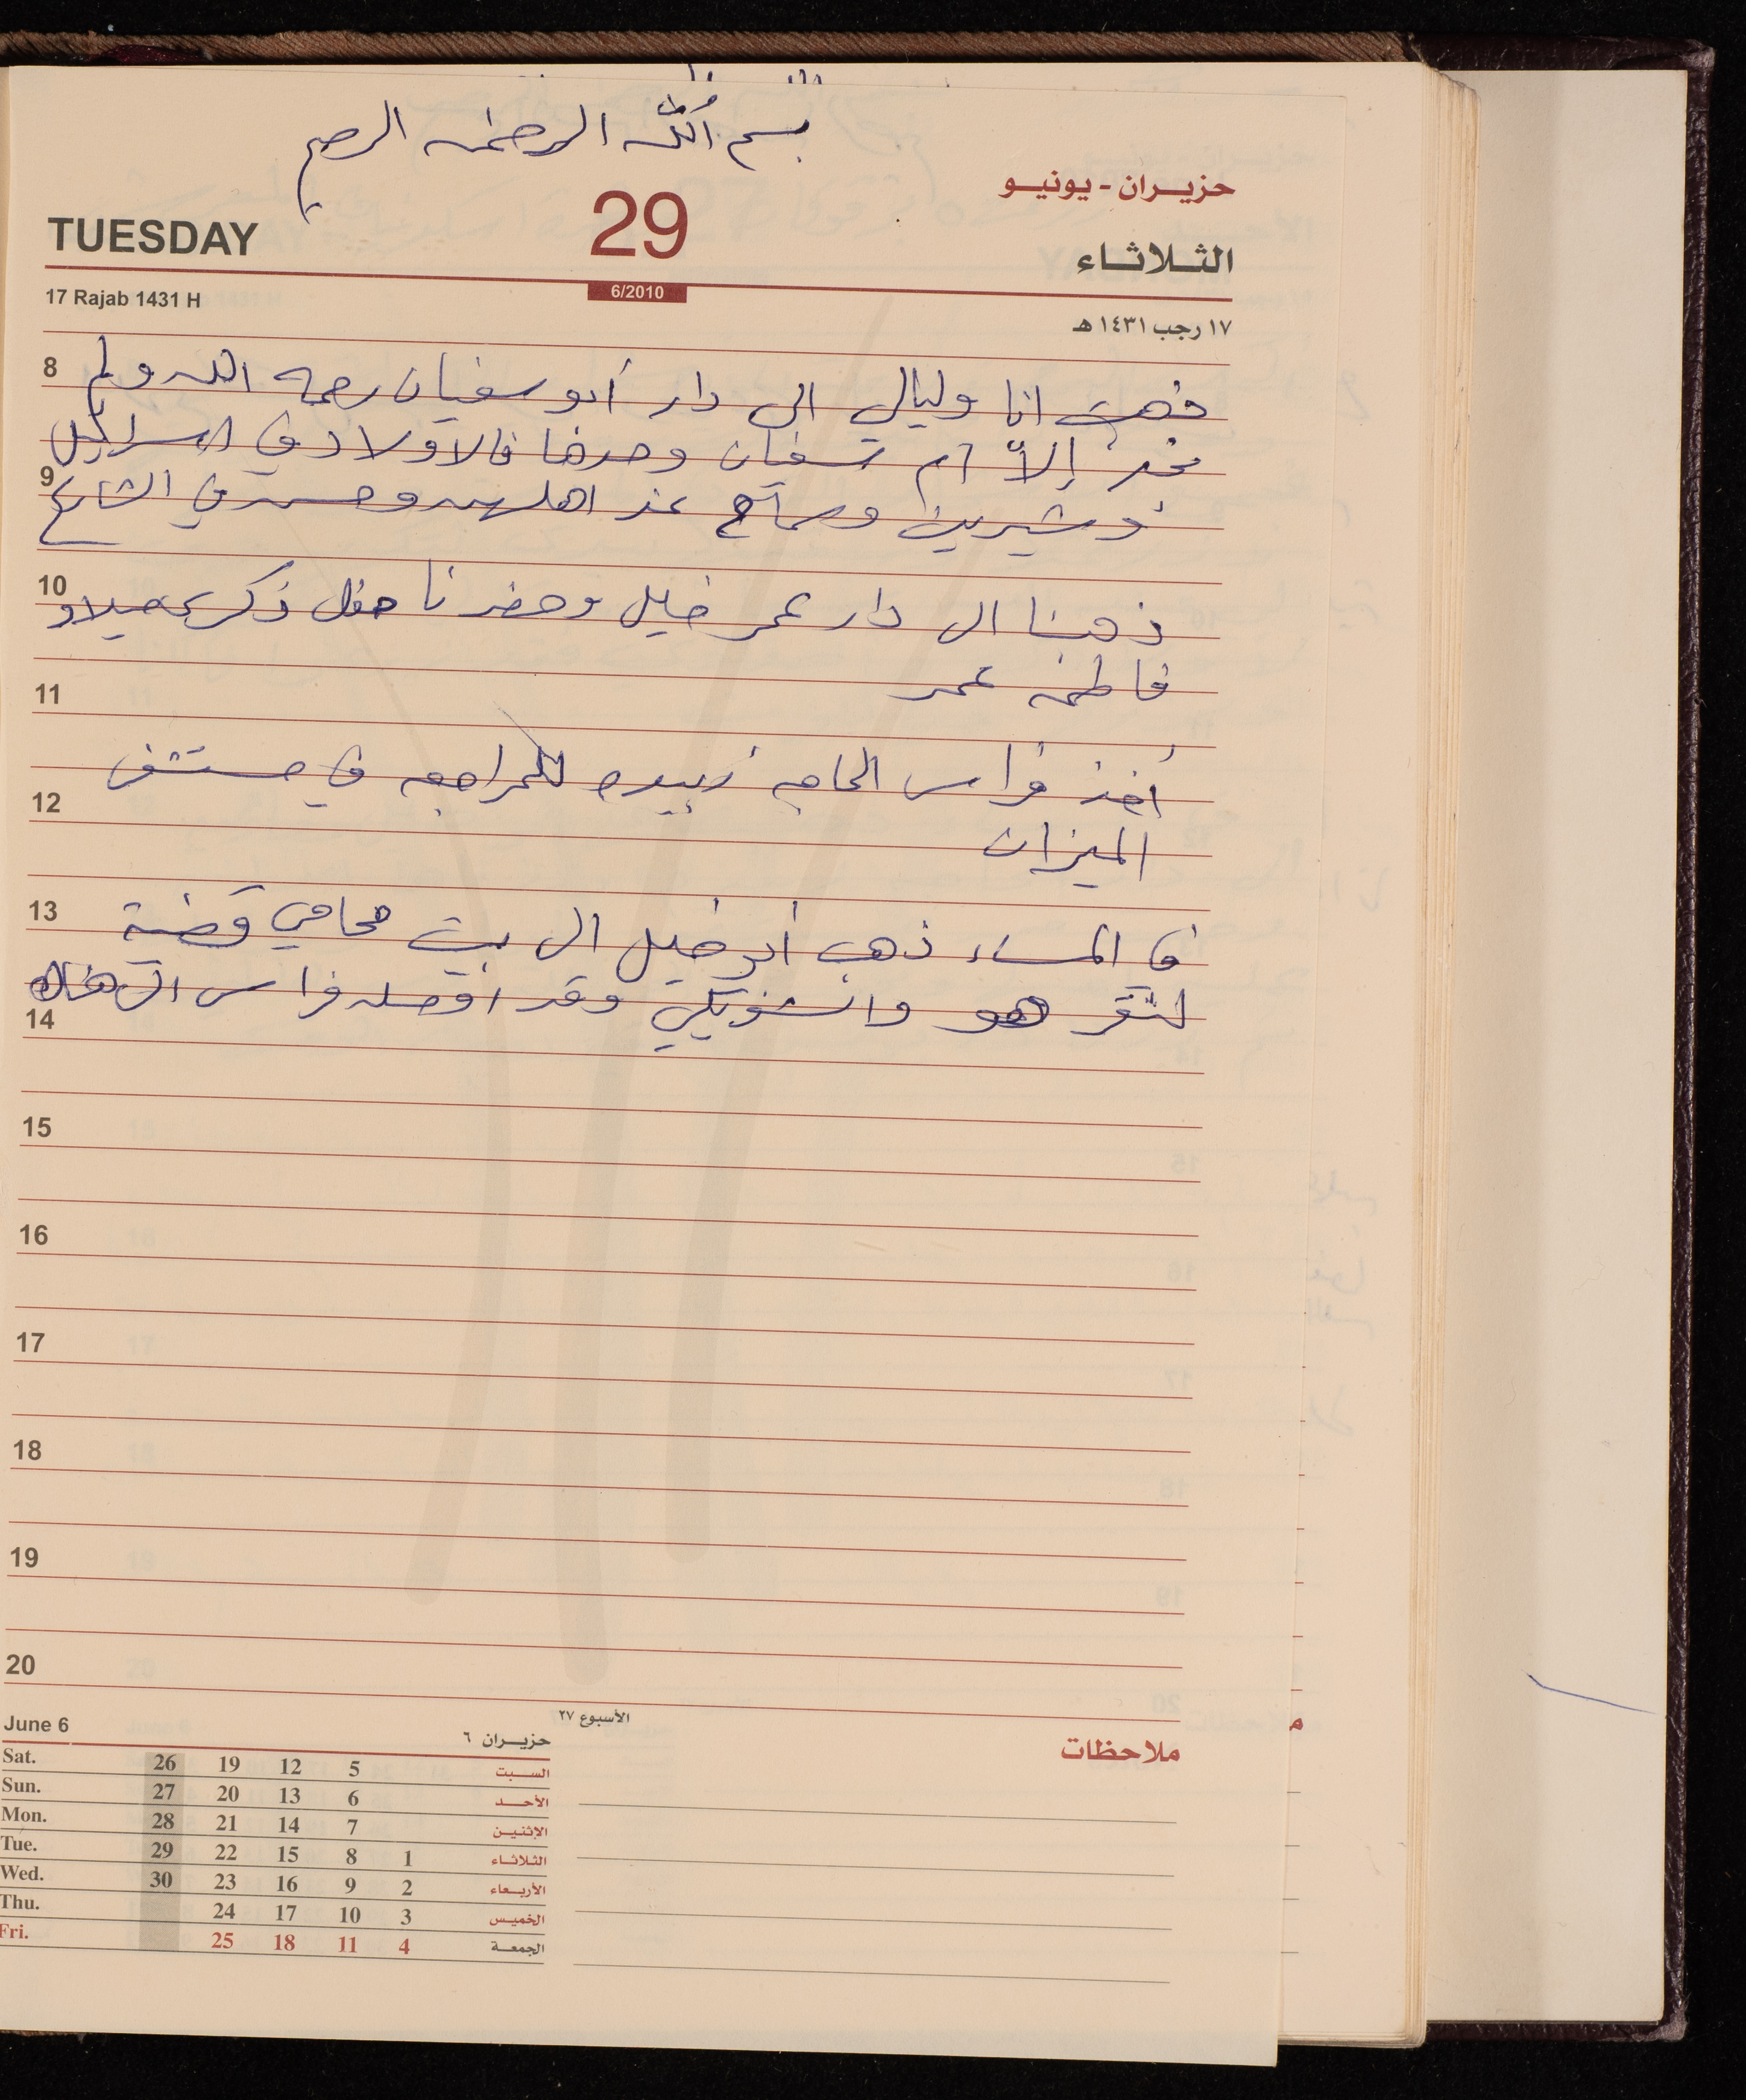 بسم الله الرحمن الرحيم
حزيران - يونيو
TUESDAY 29 الثلاثاء
6/2010
17 Rajab 1431 H ١٧ رجب ١٤٣١ هـ
8 ذهبت انا وليالي الى دار أبو سفيان رحمه الله ولم
نجد إلاّ ام سفيان وحدها فالاولاد في
9 وشيرين وسماح عند اهلهن في الشارع
10 ذهبنا الى دار عمر خليل وحضرنا حفل ذكرى ميلاد
فاطمه عمر
11
أخذ فراس الحاجه زبيده للمراجعه في مستشفى
12
الميزان
13 في المساء ذهب أبو خليل الى بيت محامي قضية
هو وقد اوصله فراس الى هناك
14
15
16
17
18
19
20
الأسبوع ٢٧
ملاحظات
June 6 حزيران ٦
Sat. 26 19 12 5 السبت
Sun. 27 20 13 6 الأحد
Mon. 28 21 14 7 الإثنين
Tue. 29 22 15 8 1 الثلاثاء
Wed. 30 23 16 9 2 الأربعاء
Thu. 24 17 10 3 الخميس
Fri. 25 18 11 4 الجمعة